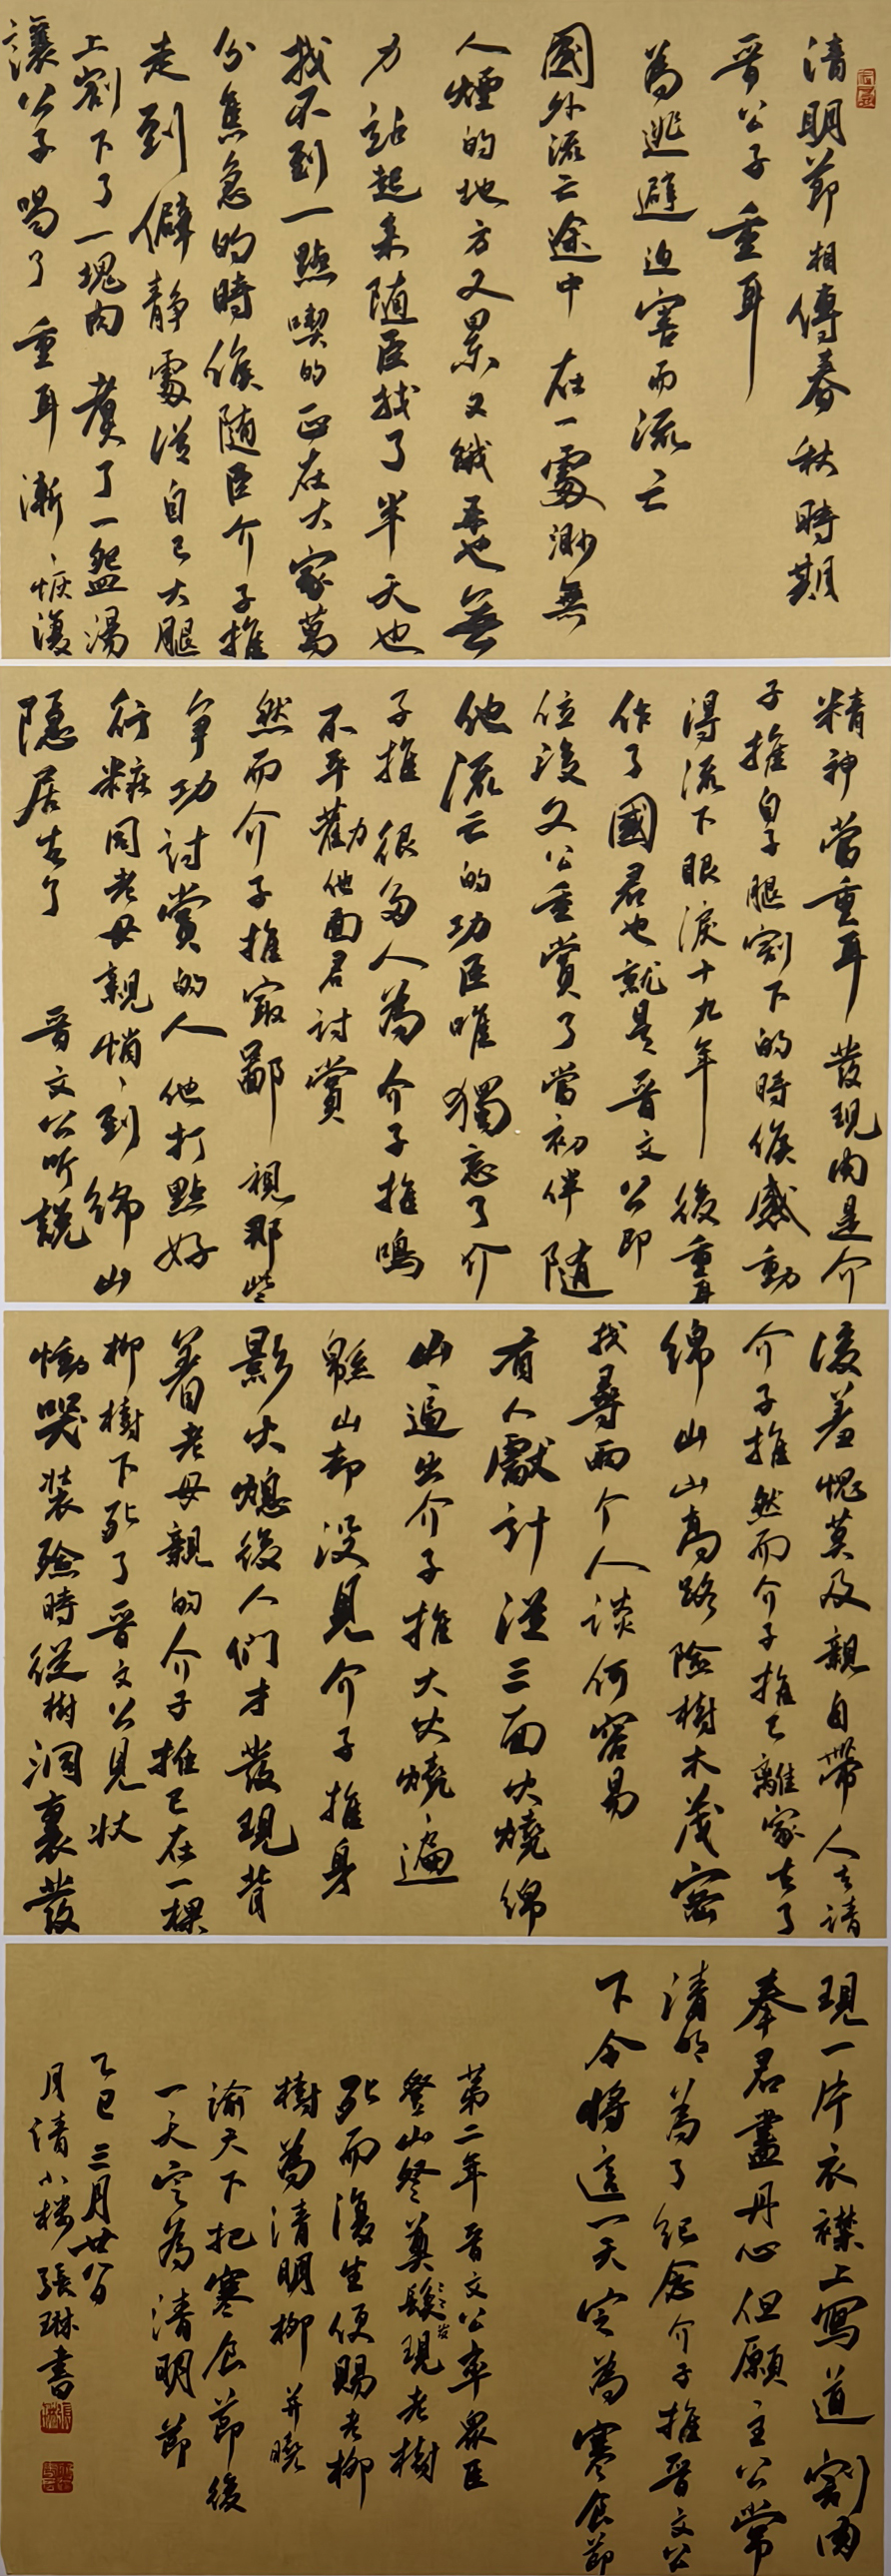 清明節相傳春秋時期
晉公子重耳
為逃避迫害而流亡
國外流亡途中在一處渺無
人煙的地方又累又餓再也無
力站起來隨臣找了半天也
找不到一點喫的正在大家萬
分焦急的時候隨臣介子推
走到僻静處從自己大腿
上割下了一塊肉煮了一盌湯
讓公子喝了重耳漸、恢復
精神當重耳發現肉是介
子推自子腿割下的時候感動
得流下眼淚十九年後重耳
作了國君也就是晉文公即
位後文公重賞了當初伴隨
他流亡的功臣唯獨忘了介
子推很多人為介子推鳴
不平勸他面君討賞
然而介子推最鄙視那些
争功討賞的人他打點好
行糚同老母親悄、到綿山
隱居去了晉文公听說
後羞愧莫及親自帶人去請
介子推然而介子推已離家去了
綿山山高路險樹木茂密
找尋兩个人談何容易
有人獻計從三面火燒綿
山逼出介子推大火燒、遍
緜山却没見介子推身
影火熄後人們才發現背
着老母親的介子推已在一棵
柳樹下死了晉文公見狀
慟哭装殮時從樹洞裏發
現一片衣襟上寫道割肉
奉君盡丹心但願主公常
清明為了紀念介子推晉文公
下令將這一天定為寒食節
第二年晉文公率衆臣
登山祭奠發現老柳樹
死而復生便賜老柳
樹為清明柳并曉
諭天下把寒食節後
一天定為清明節
乙巳三月廿八日
月清小楼張琳書